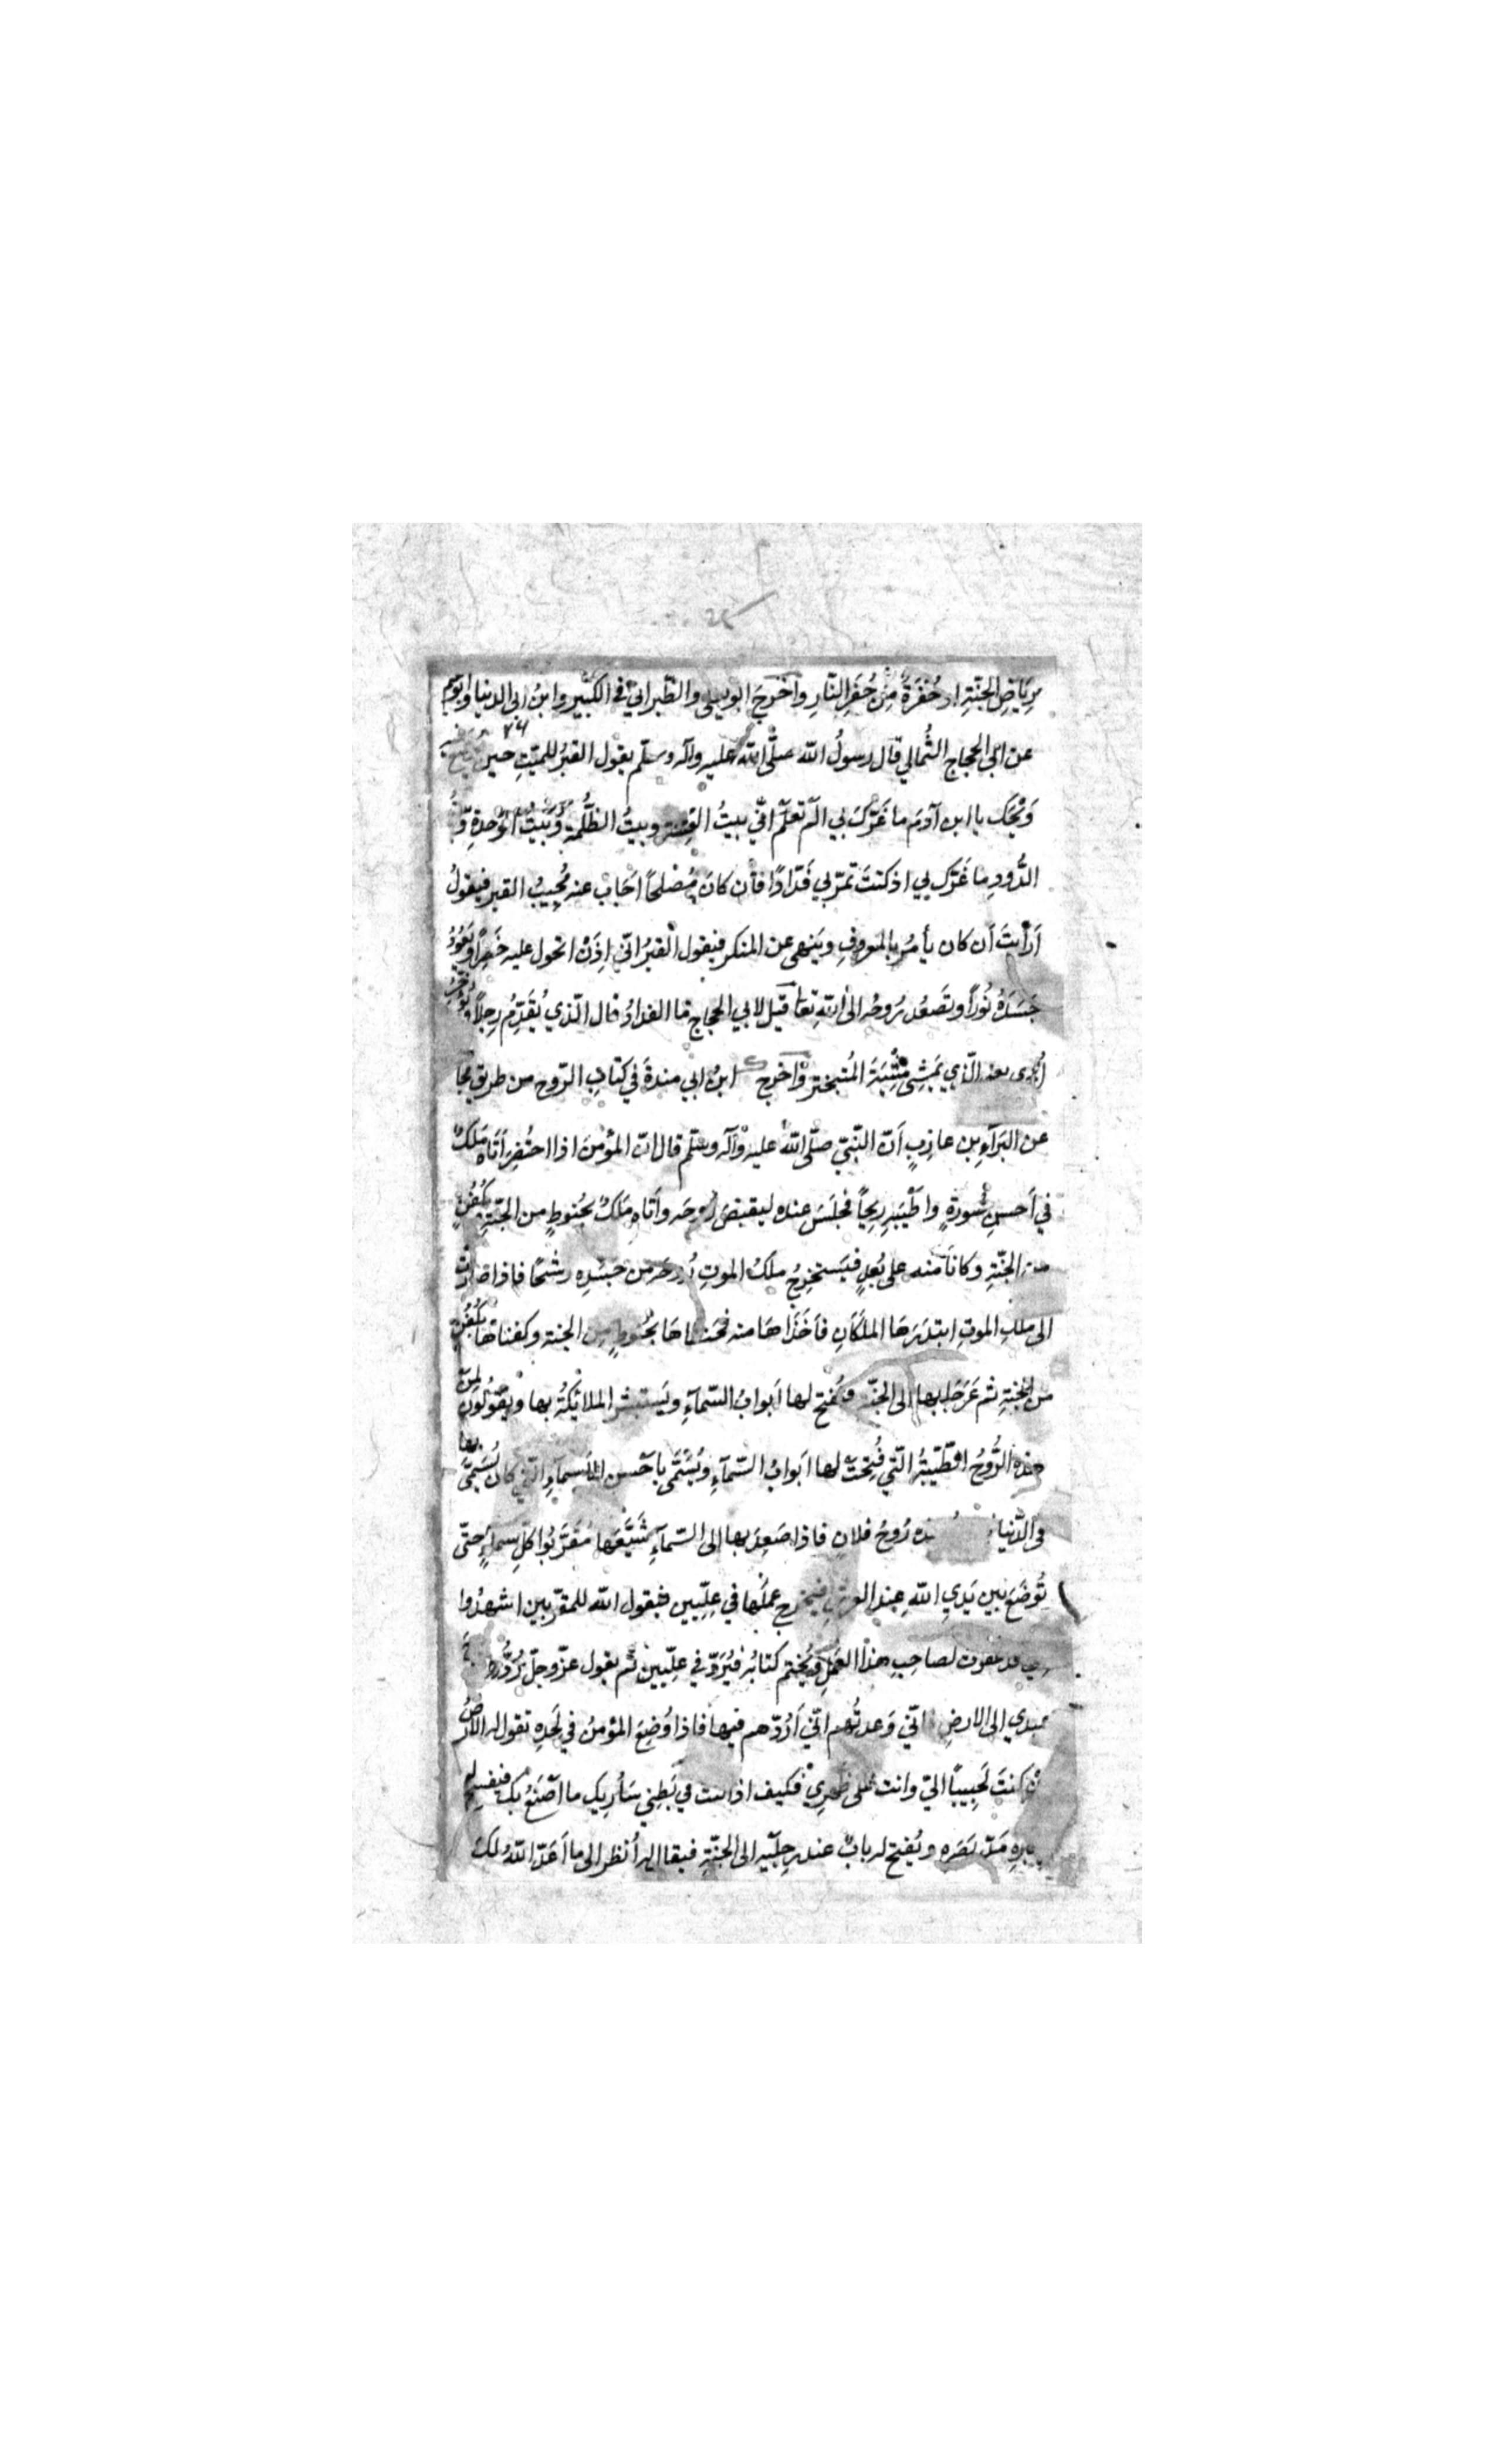 رِيَاضِ الجنّةِ او حُفرَةً مِن حُفَرِ النّارِ واَخرَجَ ابو يعلى والطّبراني في الكبير وابنُ ابى الدنيا وابو
عن ابى الحجاج الثُّمالي قال رسولُ الله صلّى الله عليه وآله وسلّم يقول القبرُ للميّتِ حين
وَيْحَك يا ابن آدمَ ما غَرَّكَ بي الَم تعلَم انّي بيتُ الفتنة وبيتُ الظُّلمة وَبَيتُ الوَحدةِ و
الدُّودِ ما غَرَّك بي اذ كنتَ تمرّ بي فَدّادًا فاِن كانَ مُصلحاً اَجابَ عنه مُجِيبُ القبرِ فيقولُ
اَرَأيتَ اَن كان يأمُر بالمعروفِ ويَنهى عن المنكر فيقول القبرُ انّي اِذَنْ اتحول عليه خَضِراً ويَعُودُ
جَسَدُهُ نُوراً وتَصعَدُ رُوحُه الى اللهِ تعا قيل لابي الحجاج ما الفدادُ قال الّذي يُقَدِّمُ رِجلاً ويُؤخِّرُ
اُخرى يعنى الّذي يَمشِى مِشْيَةَ المُتبختر واَخرج ابنُ ابي مندةَ في كتابِ الرّوح من طريق مجا
عن البَراَءِ بن عازبٍ اَنّ النّبيّ صلّى الله عليه وآله وسلّم قال انّ المؤمنَ اذا احتُضِرَ اَتَاه مَلَكٌ
في اَحسنِ صُورةٍ واطْيَبِ رِيحاً فجَلَسَ عنده ليقبضَ رُوحَه واَتاهِ مَلَكٌ بحُنوطٍ من الجنّةِ وكُفنٍ
من الجنّةِ وكاناَ منه على بُعدٍ فيَستخرِجُ ملَكُ الموتِ رُوحَه من جَسَدِه رشحًا فاذا صارت
الى ملَكِ الموتِ ابتدَرَهَا الملَكَانِ فاَخَذَاهَا منه فحَنطاهَا بحُنُوطٍ من الجنة وكفناهَا بكُفَنٍ
من الجنةِ ثم عَرَجَا بها الى الجنّة فتُفتح لها اَبوابُ السّماَءِ ويَستبشر الملائكةُ بها ويقُولُون لِمَن
هذهِ الرُّوحُ الطّيّبةُ الّتي فُتِحَت لها ابوابُ السّماَءِ ويُسَمّى باَحسن الأسماَءِ الّتي كان يُسَمّى بها
في الدُّنيا رُوحُ فلانٍ فاذا صَعِدَ بها الى السّماَءِ شَيَّعَها مُقَرَّبُوا كلّ سماءٍ حتّى
تُوضَعَ بين يَدَيِ اللهِ عند العرش فيخرج عملُها في عِلّيين فيقول الله للمقرّبين اشهدُوا
قد غفرت لصاحِبِ هذا العَمَلِ ويُختم كتابُه فيُرَدّ في عِلّيين ثم يقول عزّ وجلّ رُدُّوا
عبدي الى الارضِ انّي وَعدتُهم انّي اَرُدّهم فيها فاذا وُضِعَ المؤمنُ في لَحدِه تقول له الارضُ
كنتَ لَحَبِيباً اليّ وانت على ظَهرِيْ فكيف اذا صرت في بَطنِي سَأُرِيك ما اَصنَعُ بك فيفسح له
مَدّ بَصَره ويُفتح له بابٌ عند رِجليه الى الجنّةِ فيقال له اُنظر الى ما اَعَدّ اللهُ لك